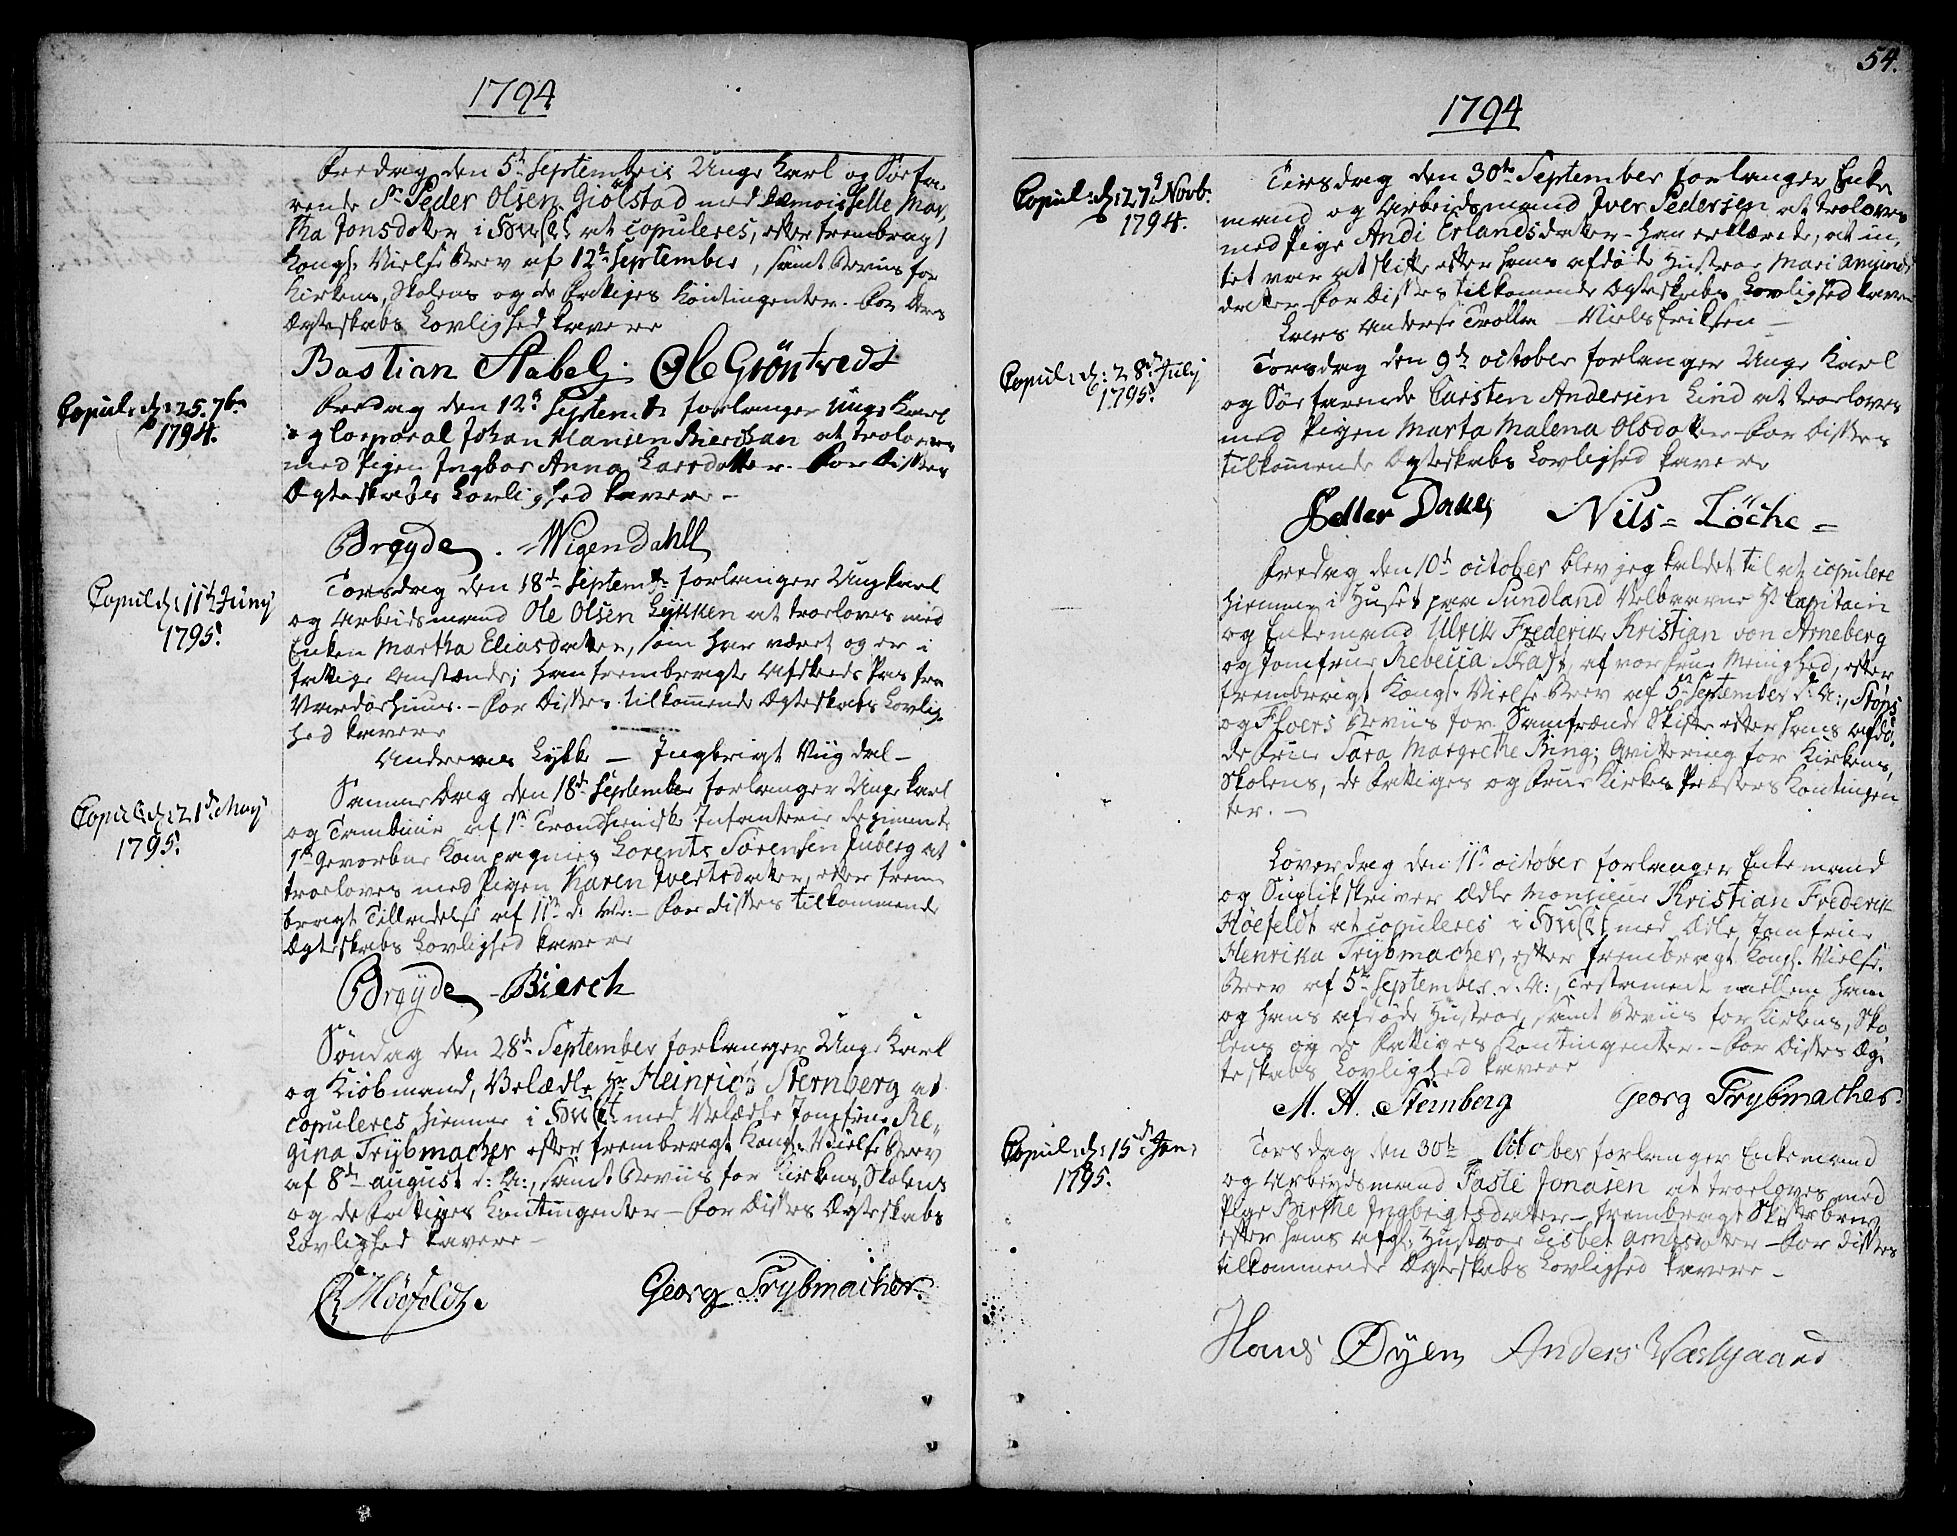 1794
Fredag den 5t Septembris Unge Karl og Søefa-
rende Sr Peder Olsen Giölstad med Demoiselle Mar-
tha Jonsdatter i Huset at copuleres, efter frembragt
Kongl. Vielse Brev af 12te September, samt Beviis for
Kirkens, Skolens og de Fattiges Contingenter. For deres
Ægteskabs Lovlighed cavere
Bastian Stabel. Ole Gröntvedt
Copul: d: 25. 7br
1794.
Fredag den 12t Septembr forlanger Unge Karl
og Corporal Johan Hansen Bierchan at troloves
med Pigen Ingbor Anna Larsdatter. For Disses
Ægteskabs Lovlighed cavere –
Brøyde. Wigen Dahll
Copul d: 11t Juny
1795.
Torsdag den 18d Septembr forlanger Ungkarl
og Arbeidsmand Ole Olsen Lykken at troeloves med
Enken Martha Eliasdatter, som har været og er i
fattige Omstænde; han frembragte Afskeeds Pas fra
Vardøehuus. – For Disses tilkommende Ægteskabs Lovlig-
hed cavere
Andreas Lykke – Ingbrigt Viigdal –
Copul d: 21d May
1795.
Dag den 18d September forlanger Unge Karl
og Tambuur af 1te Trondhiemske Infanterie Regiments
1te Gevorbne Kompagnies Lorents Sörensen Inberg at
troeloves med Pigen Karen Ivertsdatter, efter frem-
bragt Tilladelse af 11te d. M: – For disses tilkommende
Ægteskabs Lovlighed cavere
Brøyde – Bierch
Søndag den 28d September forlanger Unge Karl
og Kiøbmand, Velædle Hr Heinrich Sternberg at
copuleres hiemme i Huset med Velædle Jomfrue Re-
gina Trÿbmacher efter frembragt Kongl: Vielse Brev
af 8d august d: A:, samt Beviis for Kirkens, Skolens
og de Fattiges Contingenter – For Disses Ægteskabs
Lovlighed cavere –
Höefeldt. Georg Trybmacher.
54.
1794
Copul: d: 27d Novbr.
1794.
Tirsdag den 30te September forlanger Enke
mand og Arbeidsmand Iver Pedersen at troloves
med Pige Andi Erlandsdatter – Han erklærede, at in-
tet var at skifte efter hans afdøde Hustroe Mari Amunds
datter For Disses tilkommende Ægteskabs Lovlighed cavere
Lars Anderse Trolla – Niels Eriksen –
Copul: d: 28d July
1795.
Torsdag den 9de october forlanger Unge Karl
og Søefarende Carsten Andersen Lind at troeloves
med Pigen Marta Malena Olsdatter For Disses
tilkommende Ægteskabs Lovlighed cavere
Petter Dahl Nils = Löche =
Fredag den 10d october blev jeg kaldet til at copulere
hiemme i Huset paa Sundland Velbaarne Hr Capitain
og Enkemand Ulrik Frederik Kristian von Arneberg
og Jomfrue Rebecca Fast, af vor frue Menighed, efter
frembragt Kongl: Vielse Brev af 5te September d: A:,
og Beviis for Samfrænde Skifte efter hans afdø-
de Frue Sara Margrethe Bing; Qvittering for Kirkens,
Skolens, de Fattiges og Frue Kirkes Præsters Contingen
ter. –
Løverdag den 11te october forlanger Enkemand
og Suplikskriver Ædle Monsieur Kristian Frederik
Höefeldt at copuleres i Huset med Ædle Jomfrue
Henrika Trÿbmacher, efter frembragt Kongl: Vielse
Brev af 5te September d: A:, Testamente mellem ham
og hans afdøde Hustroe, samt Beviis for Kirkens, Sko-
lens og de Fattiges Contingenter. – For Disses Æg-
teskabs Lovlighed cavere
M. H. Sternberg Georg Trybmacher.
Copul: d: 15d Jan:
1795.
Torsdag den 30te October forlanger Enkemand
og Arbeydsmand Faste Jonasen at troeloves med
Pige Birthe Ingbrigtsdatter – frembragt Skiftebrev
efter hans afgl: Hustroe Lisbet Arnesdatter – For disses
tilkommende Ægteskabs Lovlighed cavere –
Hans Øyen Anders Wæstgaard